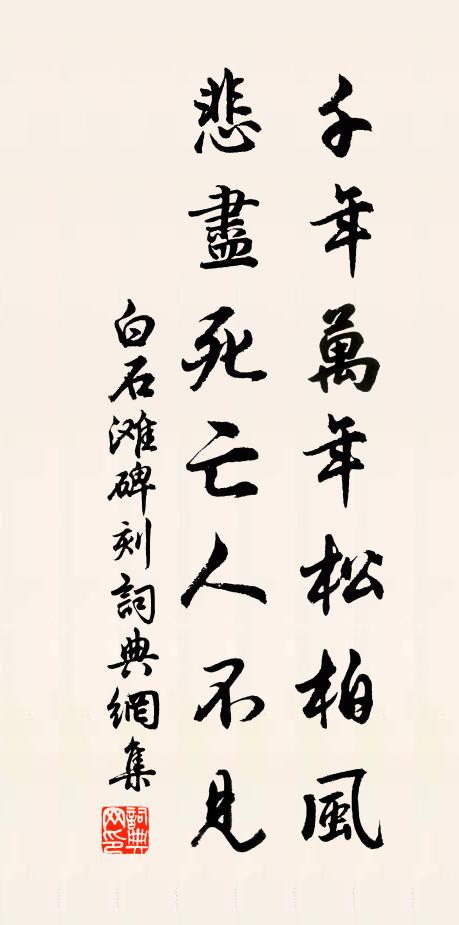 千年萬年松柏風
悲盡死亡人不見
白石滩碑刻詞典網集
詞典